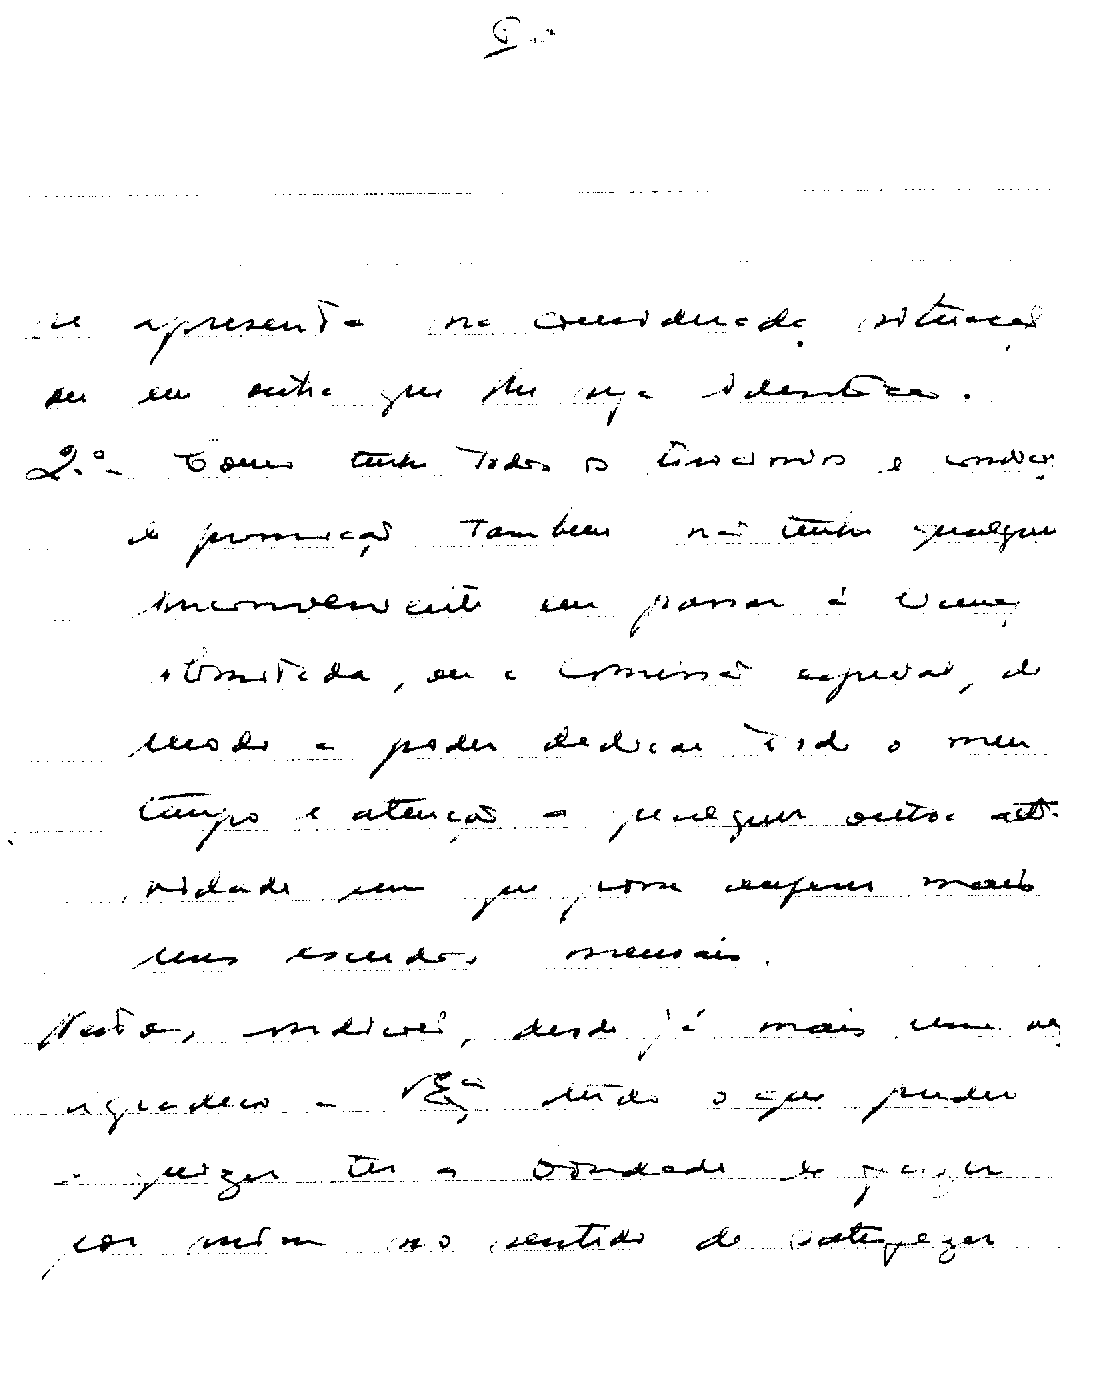 se apresenta na considerada situação
ou em outra que lhe seja idêntica.
2.º- Como tenho todos os tirocinios e condições
de promoção tambem não tenho qualquer
inconveniente em passar à licença
ilimitada, ou a comissão especial, de
modo a poder dedicar todo o meu
tempo e atenção a qualquer outra acti-
vidade em que possa angariar mais
uns escudos mensais.
Nestas condições, desde já mais uma vez
agradeço a V. Exª tudo o que puder
e quizer ter a bondade de fazer
por mim no sentido de satisfazer